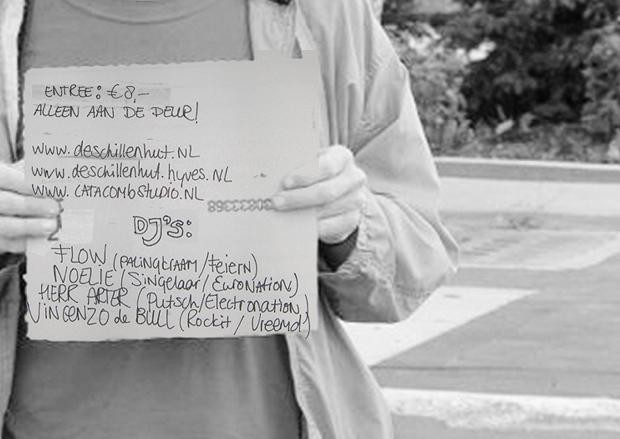 ENTREE: €8,-
ALLEEN AAN DE DEUR!
www.deschillenhut.NL
www.deschillenhut.hyves.NL
www.CATACOMBSTUDIO.NL
DJ'S:
FLOW (PALINGKRAAM/Feiern)
NOELIE (Singelaar/EuroNation)
HERR APTER (Putsch/Electronation)
VINCENZO de BULL (Rockit/Vreemd)